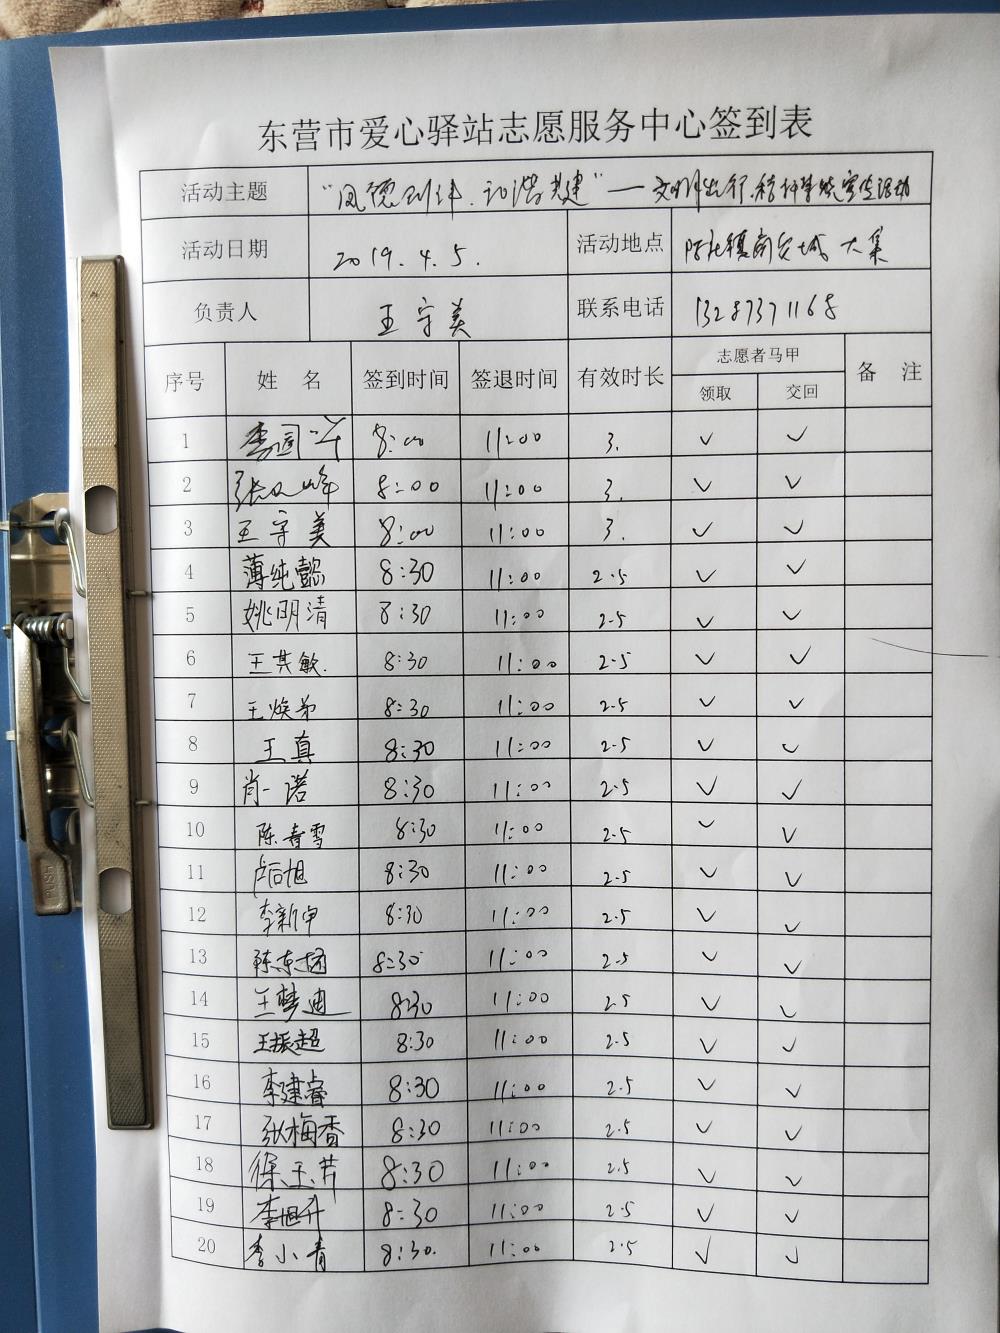 东营市爱心驿站志愿服务中心签到表
活动主题 文明出行
活动日期 2019.4.5. 活动地点 大集
负责人 王守美 联系电话 13287371168
序号 姓 名 签到时间 签退时间 有效时长 志愿者马甲 领取 交回 备 注
1 8:00 11:00 3. ✓ ✓
2 8:00 11:00 3. ✓ ✓
3 王守美 8:00 11:00 3. ✓ ✓
4 薄纯懿 8:30 11:00 2.5 ✓ ✓
5 姚明清 8:30 11:00 2.5 ✓ ✓
6 王其敏. 8:30 11:00 2.5 ✓ ✓
7 王焕弟 8:30 11:00 2.5 ✓ ✓
8 王真 8:30 11:00 2.5 ✓ ✓
9 肖一诺 8:30 11:00 2.5 ✓ ✓
10 陈春雪 8:30 11:00 2.5 ✓ ✓
11 8:30 11:00 2.5 ✓ ✓
12 李新甲 8:30 11:00 2.5 ✓ ✓
13 8:30 11:00 2.5 ✓ ✓
14 王梦迪 8:30 11:00 2.5 ✓ ✓
15 王振超 8:30 11:00 2.5 ✓ ✓
16 李建睿 8:30 11:00 2.5 ✓ ✓
17 张梅香 8:30 11:00 2.5 ✓ ✓
18 徐玉芹 8:30 11:00 2.5 ✓ ✓
19 李旭升 8:30 11:00 2.5 ✓ ✓
20 李小青 8:30. 11:00 2.5 ✓ ✓
PUSH